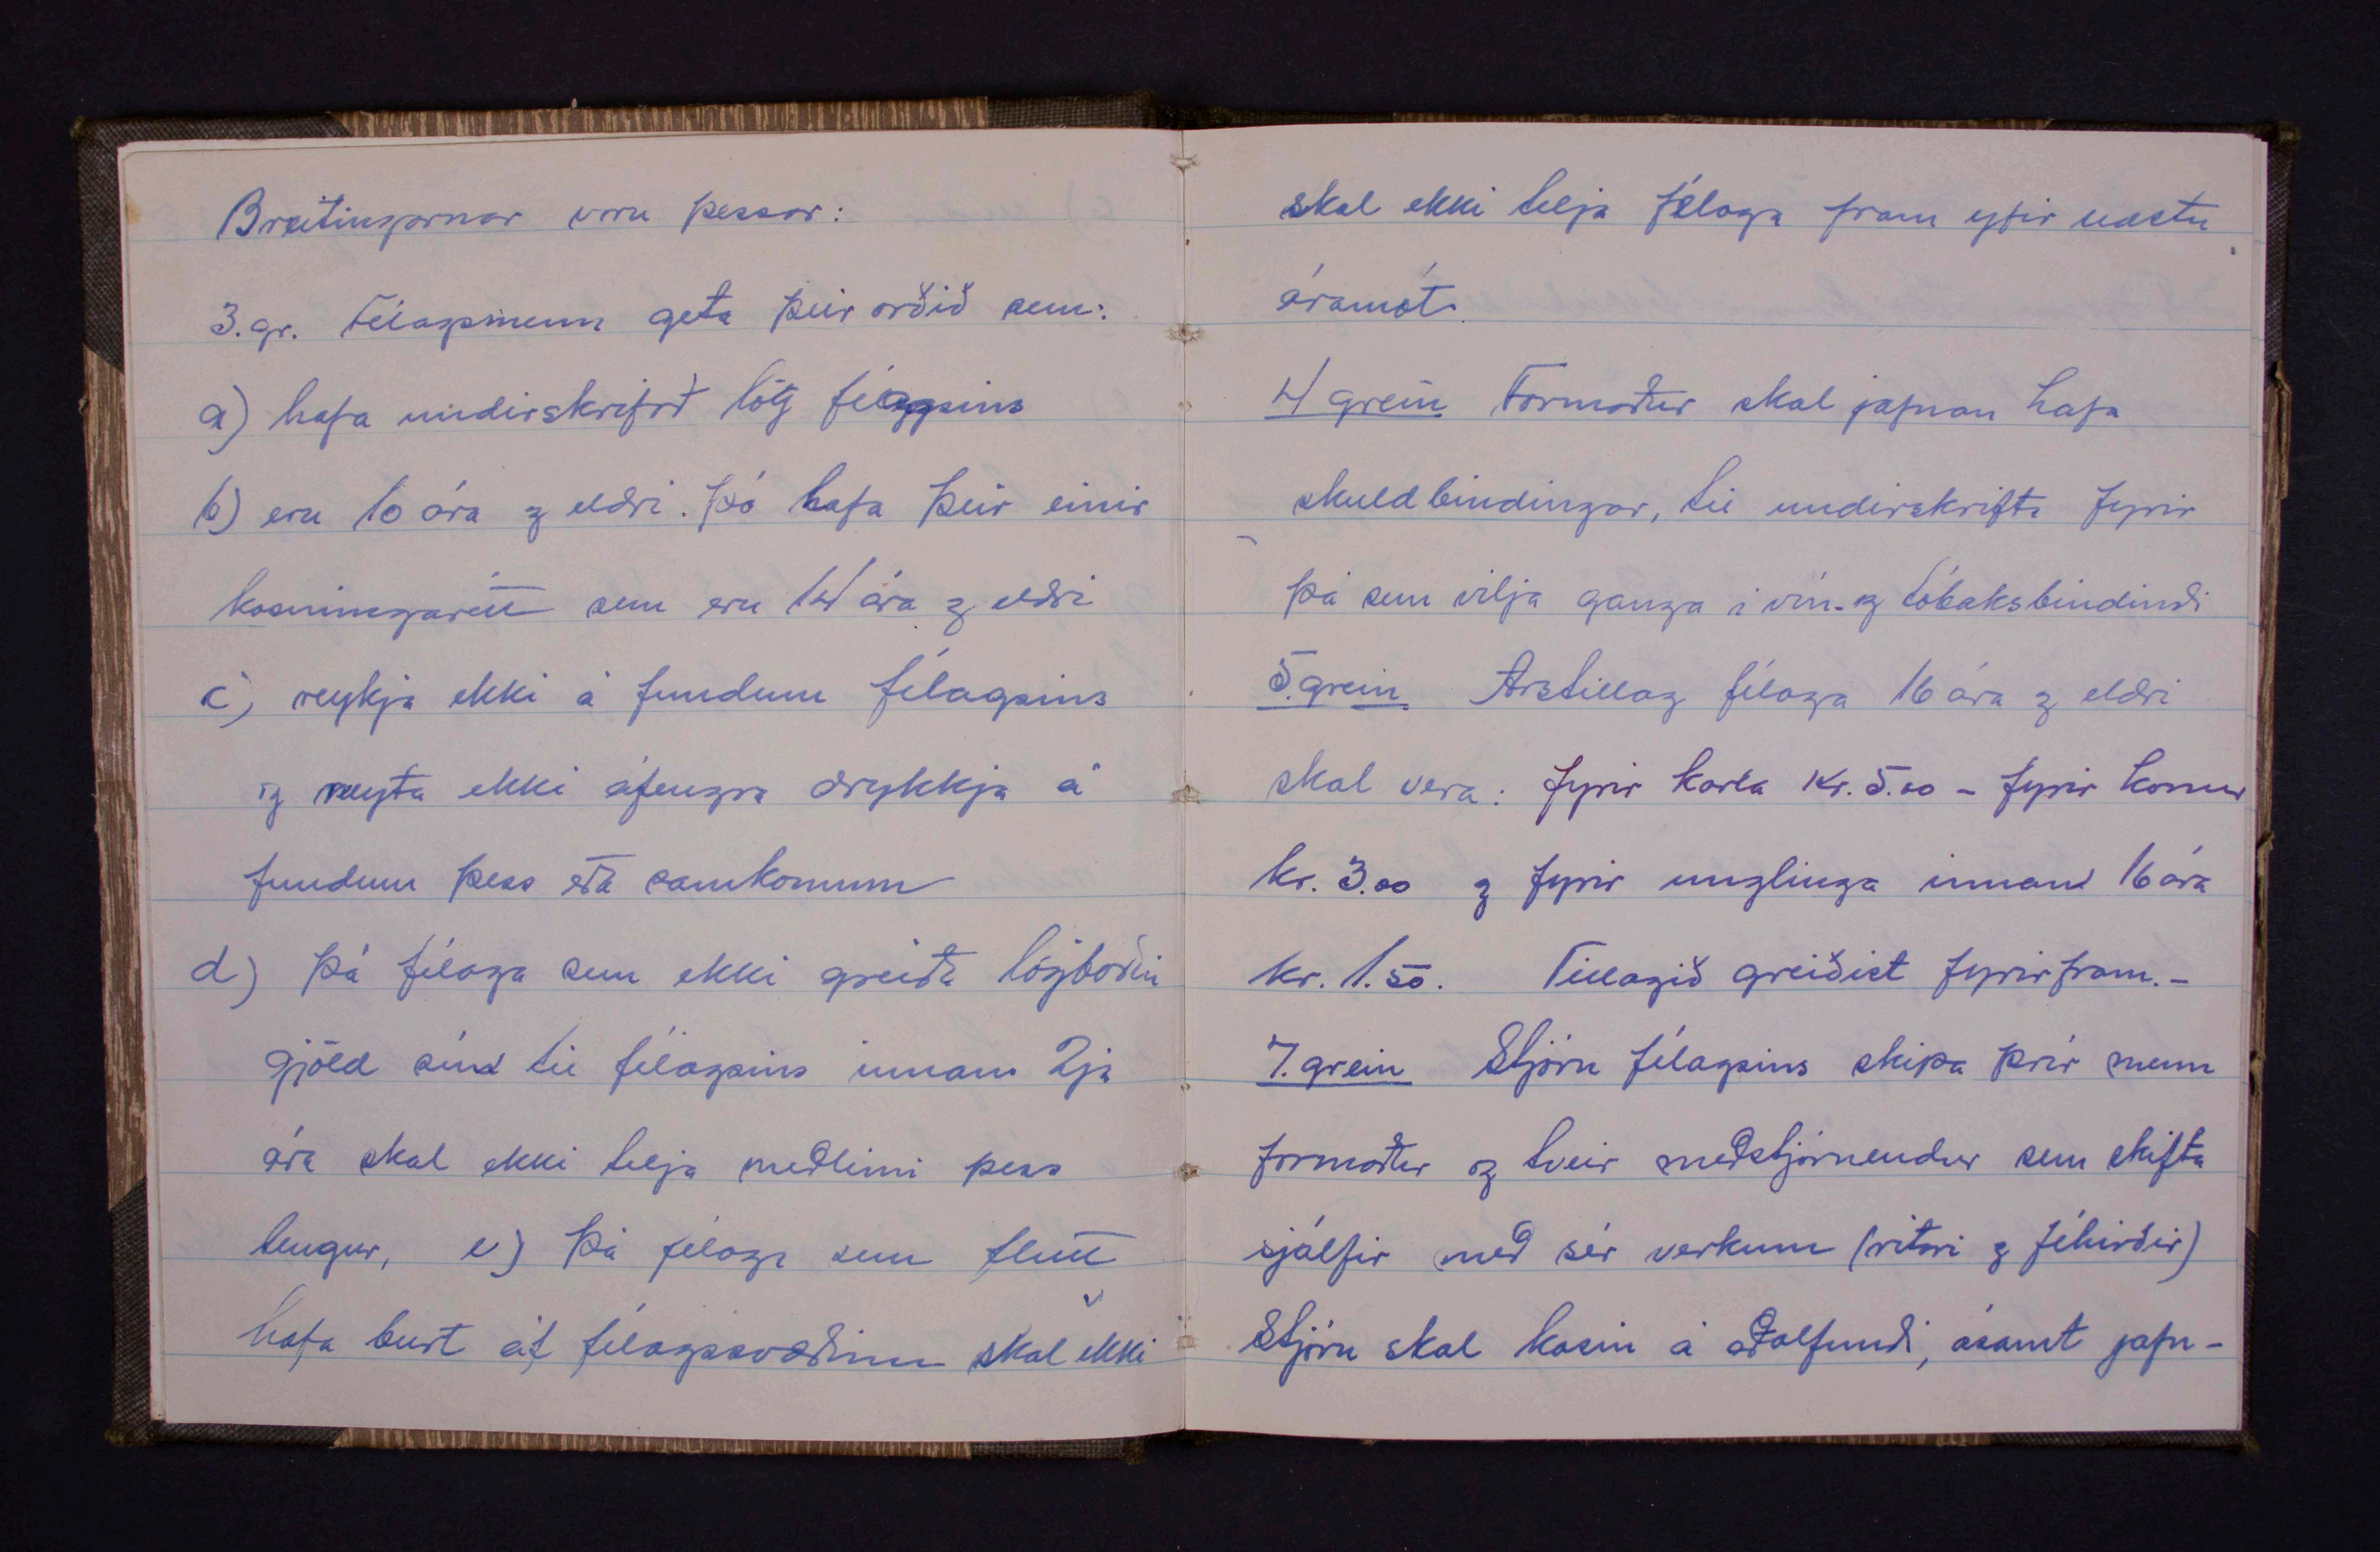 Breitingarnar voru þessar:
3. gr. Félagsmenn geta þeir orðið sem:
a) hafa undirskrifað lög félagsins
b) eru 10 ára og eldri. Þó hafa þeir einir
kosningarétt sem eru 14 ára og eldri
c) reykja ekki á fundum félagsins
og neyta ekki áfengra drykkja á
fundum þess eða samkomum
d) Þá félaga sem ekki greiða lögboðin
gjöld sín til félagsins innan 2ja
ára skal ekki telja meðlimi þess
lengur, e) Þá félaga sem flutt
hafa burt af félagssvæðinu skal ekki
skal ekki telja félaga fram yfir næstu
áramót.
4 grein Formaður skal jafnan hafa
skuldbindingar, til undirskrifta fyrir
þá sem vilja ganga í vín- og tóbaksbindindi
5. grein Árstillag félaga 16 ára og eldri
skal vera: fyrir karla Kr. 5.00 - fyrir konur
kr. 3.00 og fyrir unglinga innan 16 ára
kr. 1.50. Tillagið greiðist fyrirfram. -
7. grein Stjórn félagsins skipa þrír menn
formaður og tveir meðstjórnendur sem skifta
sjálfir með sér verkum (ritari og féhirðir)
Stjórn skal kosin á aðalfundi, ásamt jafn-